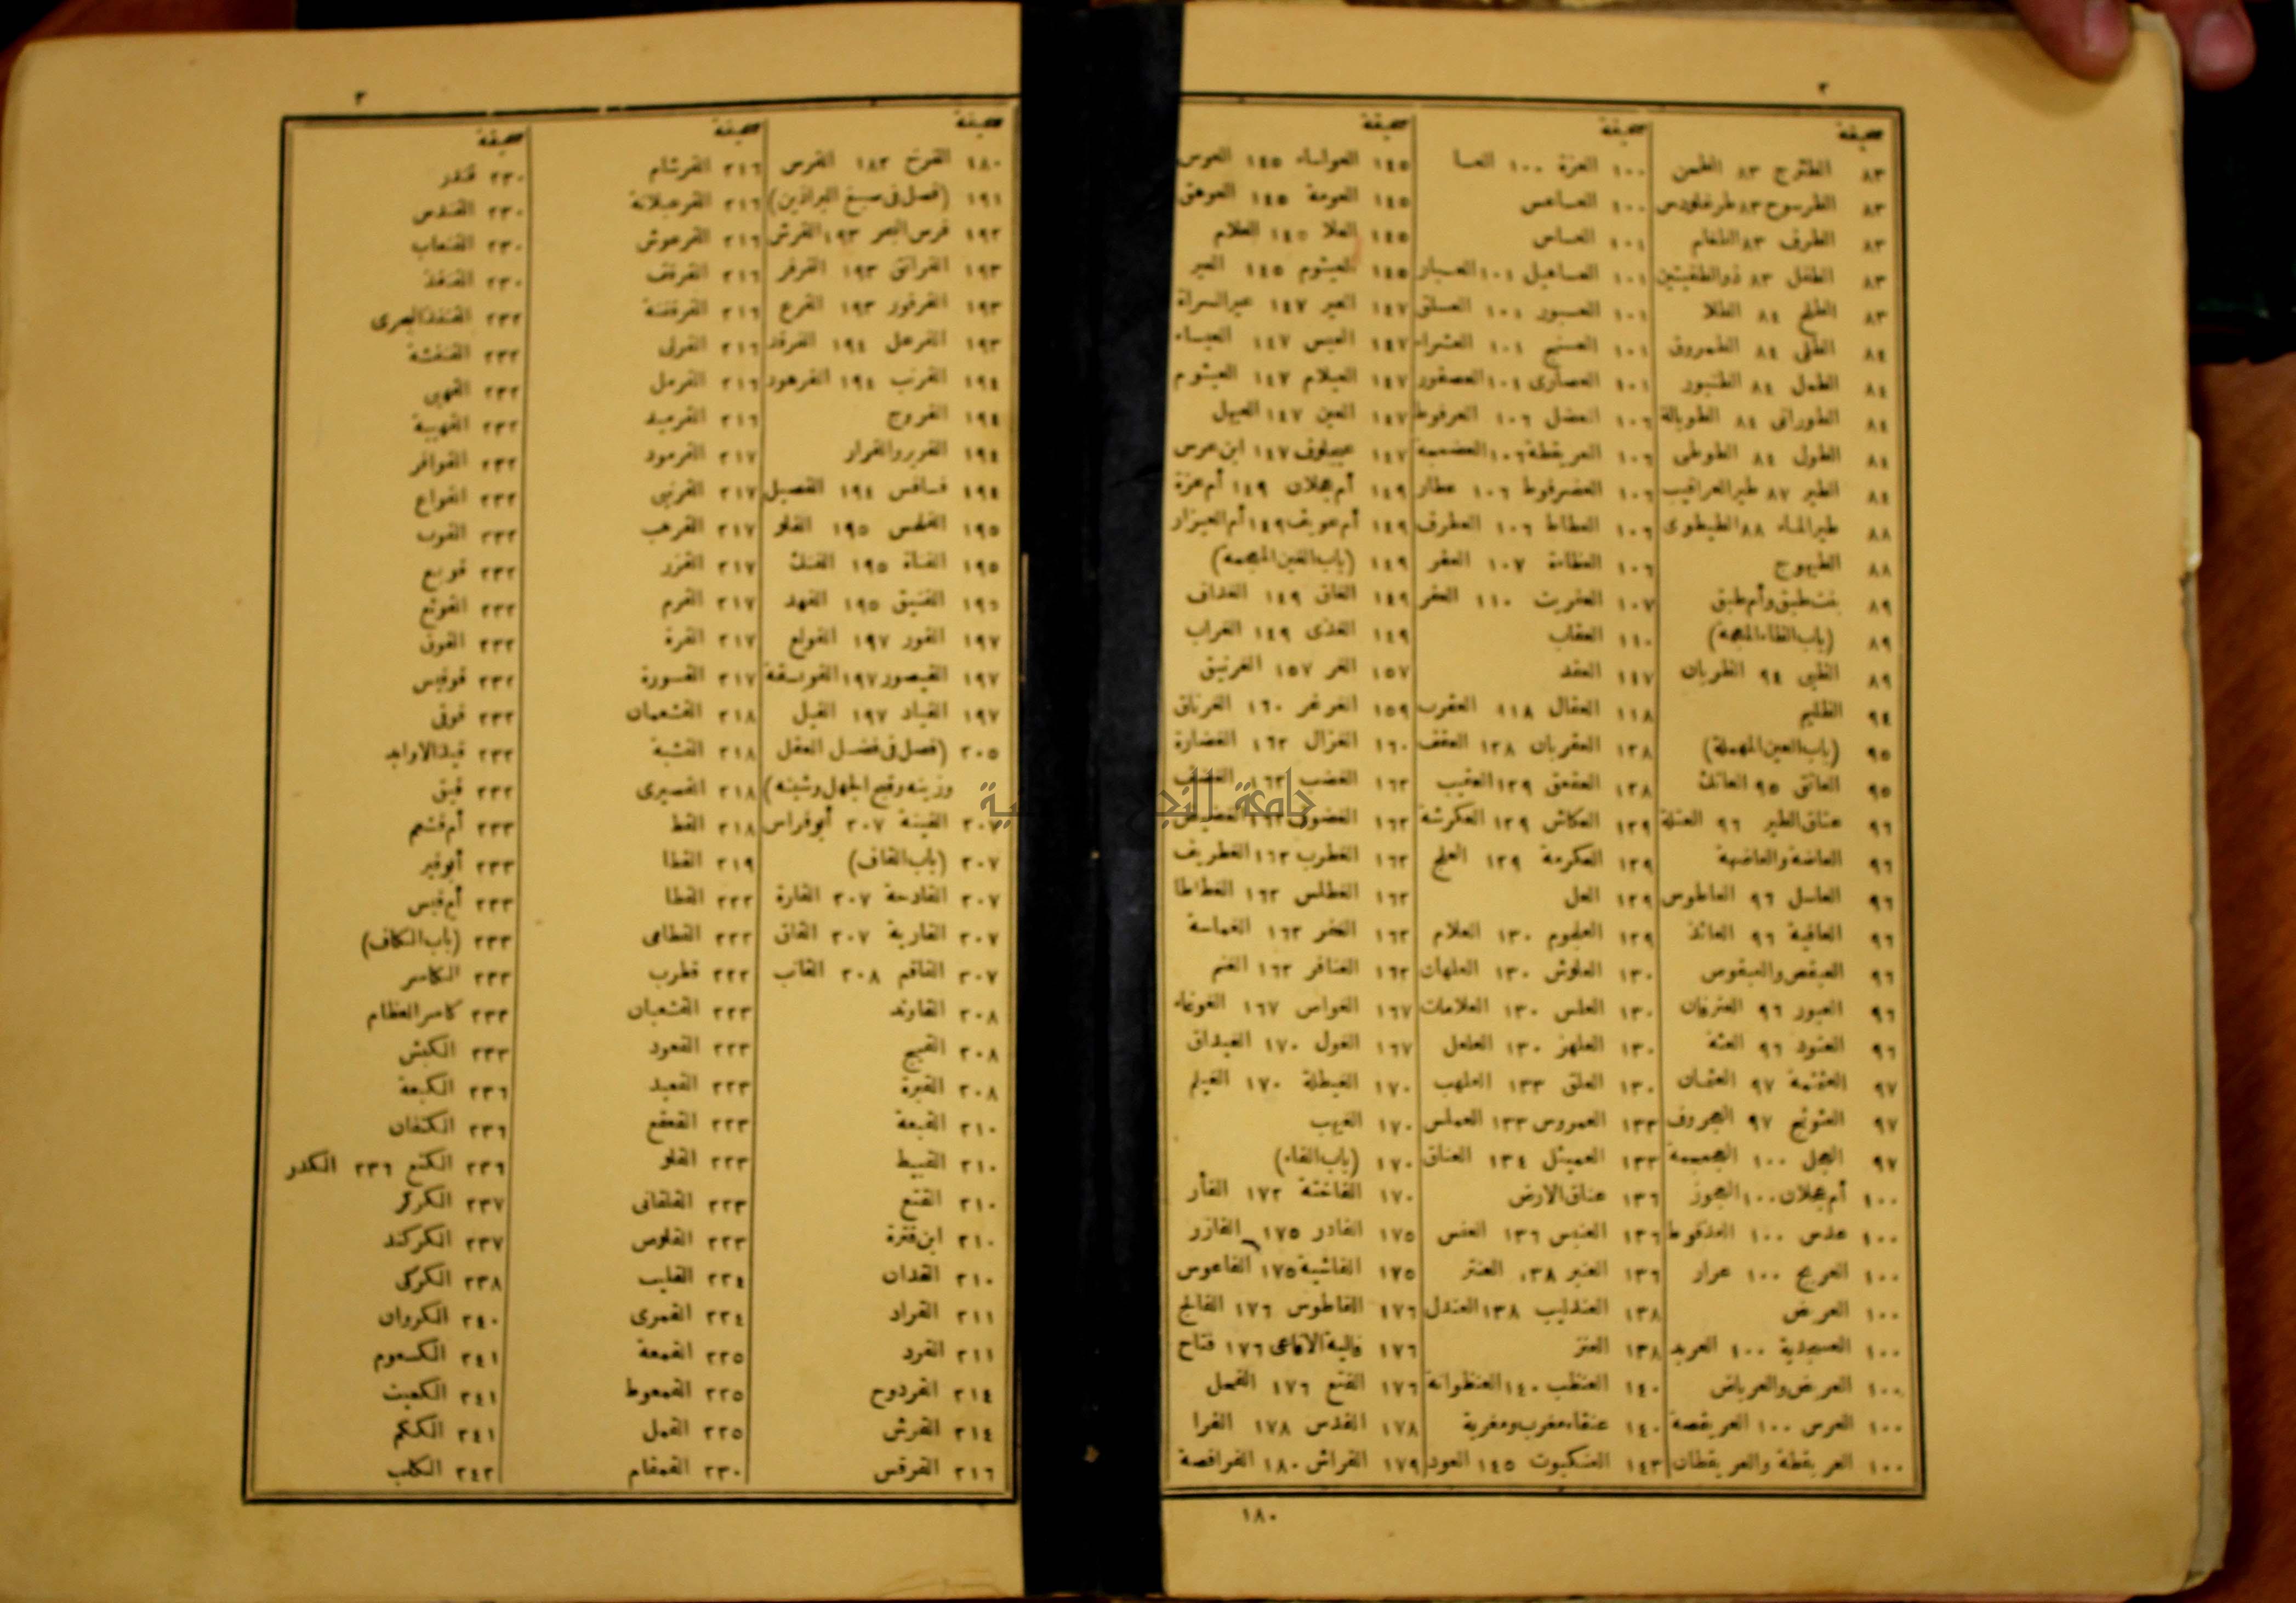 ٢
صحيفة
٨٣ الطثرج ٨٣ الطحن
٨٣ الطرسوح ٨٣ طرغلودس
٨٣ الطرف ٨٣ الطغام
٨٣ الطفل ٨٣ ذوالطفيتين
٨٣ الطلح ٨٤ الطلا
٨٤ الطلى ٨٤ الطمروق
٨٤ الطمل ٨٤ الطنبور
٨٤ الطورانى ٨٤ الطوبالة
٨٤ الطول ٨٤ الطوطى
٨٤ الطير ٨٧ طيرالعراقيب
٨٨ طيرالماء ٨٨ الطيطوى
٨٨ الطيهوج
٨٩ بنت طبق وأم طبق
٨٩ (باب الظاء المعجمة)
٨٩ الظبى ٩٤ الظربان
٩٤ الظليم
٩٥ (باب العين المهملة)
٩٥ العاتق ٩٥ العاتك
٩٦ عتاق الطير ٩٦ العتلة
٩٦ العاضة والعاضهة
٩٦ العاسل ٩٦ العاطوس
٩٦ العافية ٩٦ العائذ
٩٦ العبقص والعبقوص
٩٦ العبور ٩٦ العترفان
٩٦ العتود ٩٦ العثة
٩٧ العثمثمة ٩٧ العثمان
٩٧ العثوثج ٩٧ العجروف
٩٧ العجل ١٠٠ العجمجمة
١٠٠ أم عجلان ١٠٠ العجوز
١٠٠ عدس ١٠٠ العذفوط
١٠٠ العربج ١٠٠ عرار
١٠٠ العربض
١٠٠ العسجدية ١٠٠ العربد
١٠٠ العربض والعرباض
١٠٠ العرس ١٠٠ العريقصة
١٠٠ العريقطة والعريقطان
صحيفة
١٠٠ العزة ١٠٠ العسا
١٠٠ العساعس
١٠١ العساس
١٠١ العساهيل ١٠١ العسبار
١٠١ العسبور ١٠١ العسلق
١٠١ العسنج ١٠١ العشراء
١٠١ العصارى ١٠١ العصفور
١٠٦ العضل ١٠٦ العرفوط
١٠٦ العريقطة ١٠٦ العضمجة
١٠٦ العضرفوط ١٠٦ عطار
١٠٦ العطاط ١٠٦ العطرف
١٠٦ العظاءة ١٠٧ العفر
١٠٧ العفريت ١١٠ العفر
١١٠ العقاب
١١٧ العقد
١١٨ العقال ١١٨ العقرب
١٢٨ العقربان ١٢٨ العقف
١٢٨ العقعق ١٢٩ العقيب
١٢٩ العكاش ١٢٩ العكرشة
١٢٩ العكرمة ١٢٩ العلج
١٢٩ العل
١٢٩ العلجوم ١٣٠ العلام
١٣٠ العلوش ١٣٠ العلهات
١٣٠ العلس ١٣٠ العلامات
١٣٠ العلهز ١٣٠ العلعل
١٣٠ العلق ١٣٣ العلهب
١٣٣ العمروس ١٣٣ العملس
١٣٣ العميثل ١٣٤ العناق
١٣٦ عناق الارض
١٣٦ العنبس ١٣٦ العنس
١٣٦ العنبر ١٣٨ العنتر
١٣٨ العندليب ١٣٨ العندل
١٣٨ العنز
١٤٠ العنظب ١٤٠ العنظوانة
١٤٠ عنقاء مغرب ومغربة
١٤٣ العنكبوت ١٤٥ العود
صحيفة
١٤٥ العواساء ١٤٥ العوس
١٤٥ العومة ١٤٥ العوهق
١٤٥ العلا ١٤٥ العلام
١٤٥ العيثوم ١٤٥ العير
١٤٧ العير ١٤٧ عيرالسراة
١٤٧ العيس ١٤٧ العيساء
١٤٧ العيلام ١٤٧ العيثوم
١٤٧ العين ١٤٧ العيهل
١٤٧ عيجلوف ١٤٧ ابن عرس
١٤٩ أم عجلان ١٤٩ أم عزة
١٤٩ أم عويف ١٤٩ أم العيزار
١٤٩ (باب الغين المعجمة)
١٤٩ الغاق ١٤٩ الغداف
١٤٩ الغذى ١٤٩ الغراب
١٥٧ الغر ١٥٧ الغرنيق
١٥٩ الغرغر ١٦٠ الغرناق
١٦٠ الغزال ١٦٢ الغضارة
١٦٢ الغضب ١٦٢ الغضف
١٦٢ الغضوف ١٦٢ الغضيض
١٦٢ الغطرب ١٦٢ الغطريف
١٦٢ الغطلس ١٦٢ الغطاطا
١٦٢ الغفر ١٦٢ الغماسة
١٦٢ الغنافر ١٦٢ الغنم
١٦٧ الغواص ١٦٧ الغوغاء
١٦٧ الغول ١٧٠ الغيداق
١٧٠ الغيطلة ١٧٠ الغيلم
١٧٠ الغيهب
١٧٠ (باب الفاء)
١٧٠ الفاختة ١٧٢ الفأر
١٧٥ الفادر ١٧٥ الفازر
١٧٥ الفاشية ١٧٥ الفاعوس
١٧٦ الفاطوس ١٧٦ الفالج
١٧٦ فالية الافاعى ١٧٦ فتاح
١٧٦ الفتع ١٧٦ الفحل
١٧٨ الفدس ١٧٨ الفرا
١٧٩ الفراش ١٨٠ الفرافصة
١٨٠
٣
صحيفة
١٨٠ الفرخ ١٨٢ الفرس
١٩١ (فصل فى سبخ البراذين)
١٩٢ فرس البحر ١٩٣ الفرش
١٩٣ الفرانق ١٩٣ الفرفر
١٩٣ الفرفور ١٩٣ الفرع
١٩٣ الفرعل ١٩٤ الفرقد
١٩٤ الفرنب ١٩٤ الفرهود
١٩٤ الفروج
١٩٤ الفرير والفرار
١٩٤ فسافس ١٩٤ الفصيل
١٩٥ الفلحس ١٩٥ الفلو
١٩٥ الفناة ١٩٥ الفنك
١٩٥ الفنيق ١٩٥ الفهد
١٩٧ الفور ١٩٧ الفولع
١٩٧ الفيصور ١٩٧ الفويسقة
١٩٧ الفياد ١٩٧ الفيل
٢٠٥ (فصل فى فضل العقل
وزينه وقبح الجهل وشينه)
٢٠٧ الفينة ٢٠٧ أبو فراس
٢٠٧ (باب القاف)
٢٠٧ القادحة ٢٠٧ القارة
٢٠٧ القارية ٢٠٧ القاق
٢٠٧ القاقم ٢٠٨ القانب
٢٠٨ القاوند
٢٠٨ القبج
٢٠٨ القبرة
٢١٠ القبعة
٢١٠ القبيط
٢١٠ القتع
٢١٠ ابن قترة
٢١٠ القدان
٢١١ القراد
٢١١ القرد
٢١٤ القردوح
٢١٤ القرش
٢١٦ القرقس
صحيفة
٢١٦ القرشام
٢١٦ القرعبلانة
٢١٦ القرعوش
٢١٦ القرقف
٢١٦ القرقفنة
٢١٦ القرلى
٢١٦ القرمل
٢١٦ القرميد
٢١٧ القرمود
٢١٧ القرنبى
٢١٧ القرهب
٢١٧ القزر
٢١٧ القرم
٢١٧ القرة
٢١٧ القسورة
٢١٨ القشعمان
٢١٨ القشبة
٢١٨ القصيرى
٢١٨ القط
٢١٩ القطا
٢٢٢ القطا
٢٢٢ القطامى
٢٢٢ قطرب
٢٢٣ القشعبان
٢٢٣ القعود
٢٢٣ القعيد
٢٢٣ القعقع
٢٢٣ القلو
٢٢٣ القلقانى
٢٢٣ القلوص
٢٢٤ القليب
٢٢٤ القمرى
٢٢٥ القمعة
٢٢٥ القمعوط
٢٢٥ القمل
٢٣٠ القمقام
صحيفة
٢٣٠ قندر
٢٣٠ القندس
٢٣٠ القنعاب
٢٣٠ القنفذ
٢٣٢ القنفذ البحرى
٢٣٢ القنفشة
٢٣٢ القهبى
٢٣٢ القهيبة
٢٣٢ القوافر
٢٣٢ القواع
٢٣٢ القوب
٢٣٢ قوبع
٢٣٢ القوثع
٢٣٢ القوق
٢٣٢ قوقيس
٢٣٢ قوقى
٢٣٢ قيد الاوابد
٢٣٢ قيق
٢٣٣ أم قشعم
٢٣٣ أبو قير
٢٣٣ أم قيس
٢٣٣ (باب الكاف)
٢٣٣ الكاسر
٢٣٣ كاسر العظام
٢٣٣ الكبش
٢٣٦ الكبعة
٢٣٦ الكتفان
٢٣٦ الكتع ٢٣٦ الكدر
٢٣٧ الكركر
٢٣٧ الكركند
٢٣٨ الكركى
٢٤٠ الكروان
٢٤١ الكسعوم
٢٤١ الكعيت
٢٤١ الككم
٢٤٢ الكلب
جامعة النجاح